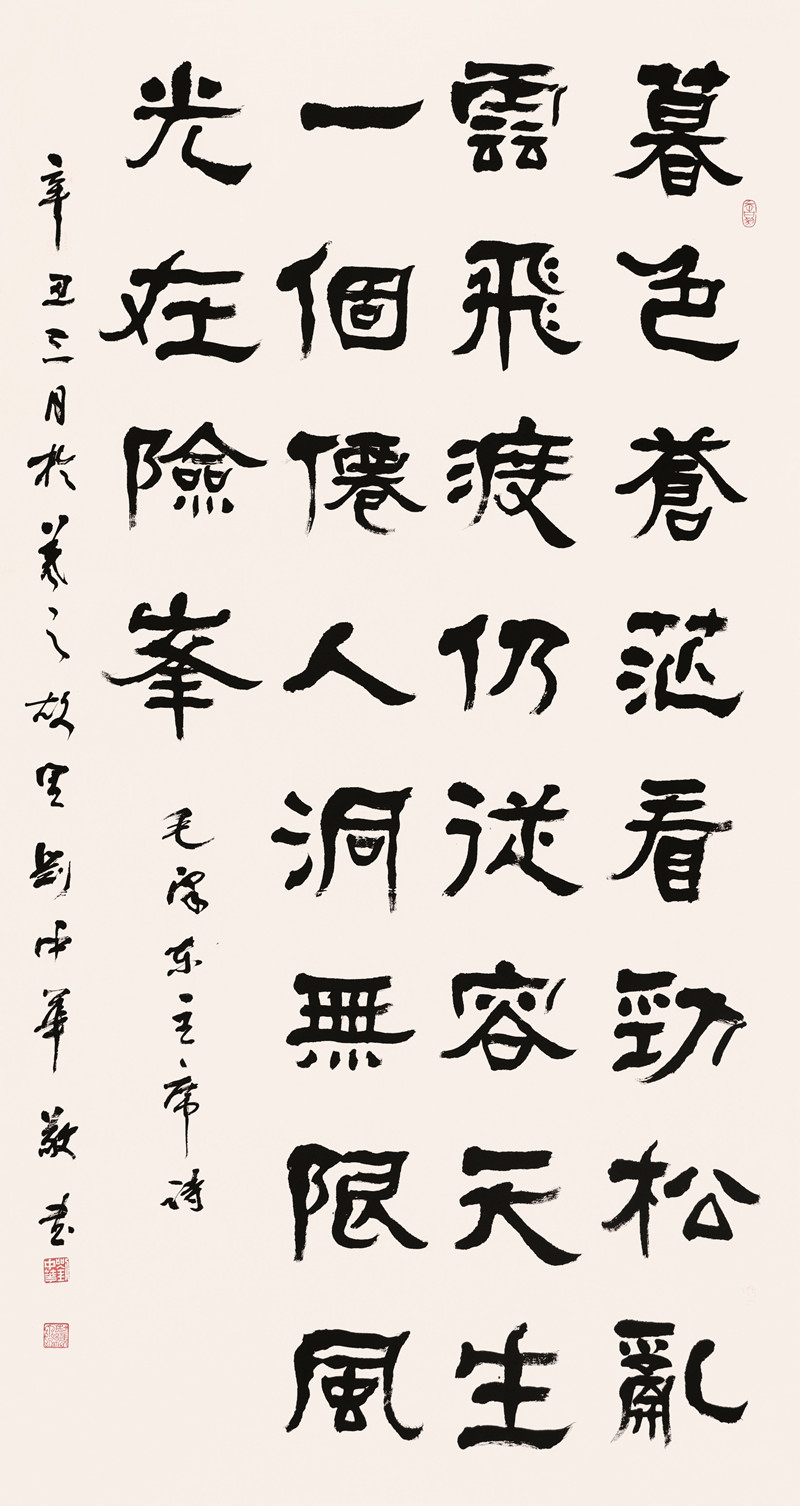 暮色蒼茫看勁松亂
雲飛渡仍從容天生
一個僊人洞無限風
光在險峯
毛澤东主席诗
辛丑三月於羲之故里劉中華敬书